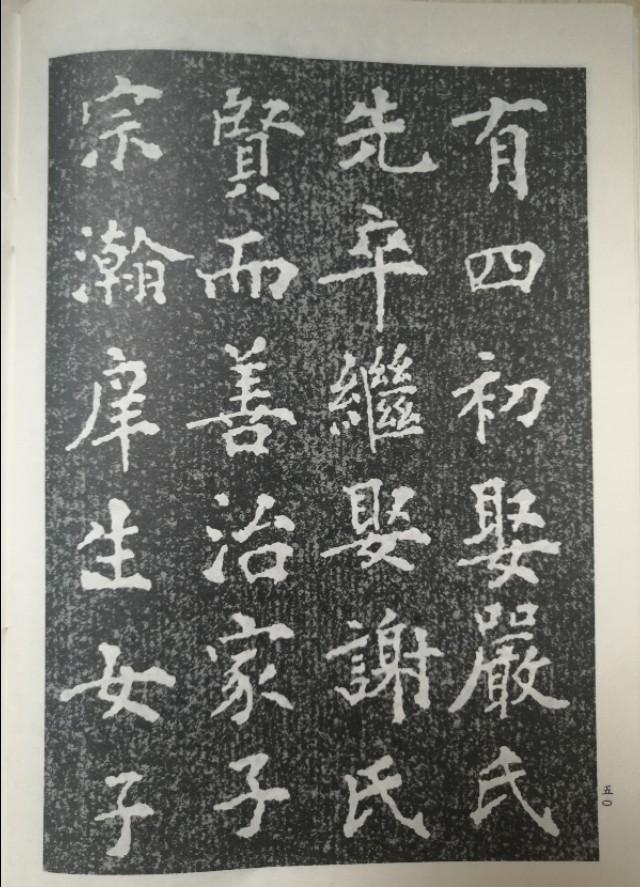 有四初娶嚴氏
先卒繼娶謝氏
賢而善治家子
宗瀚庠生女子
五〇